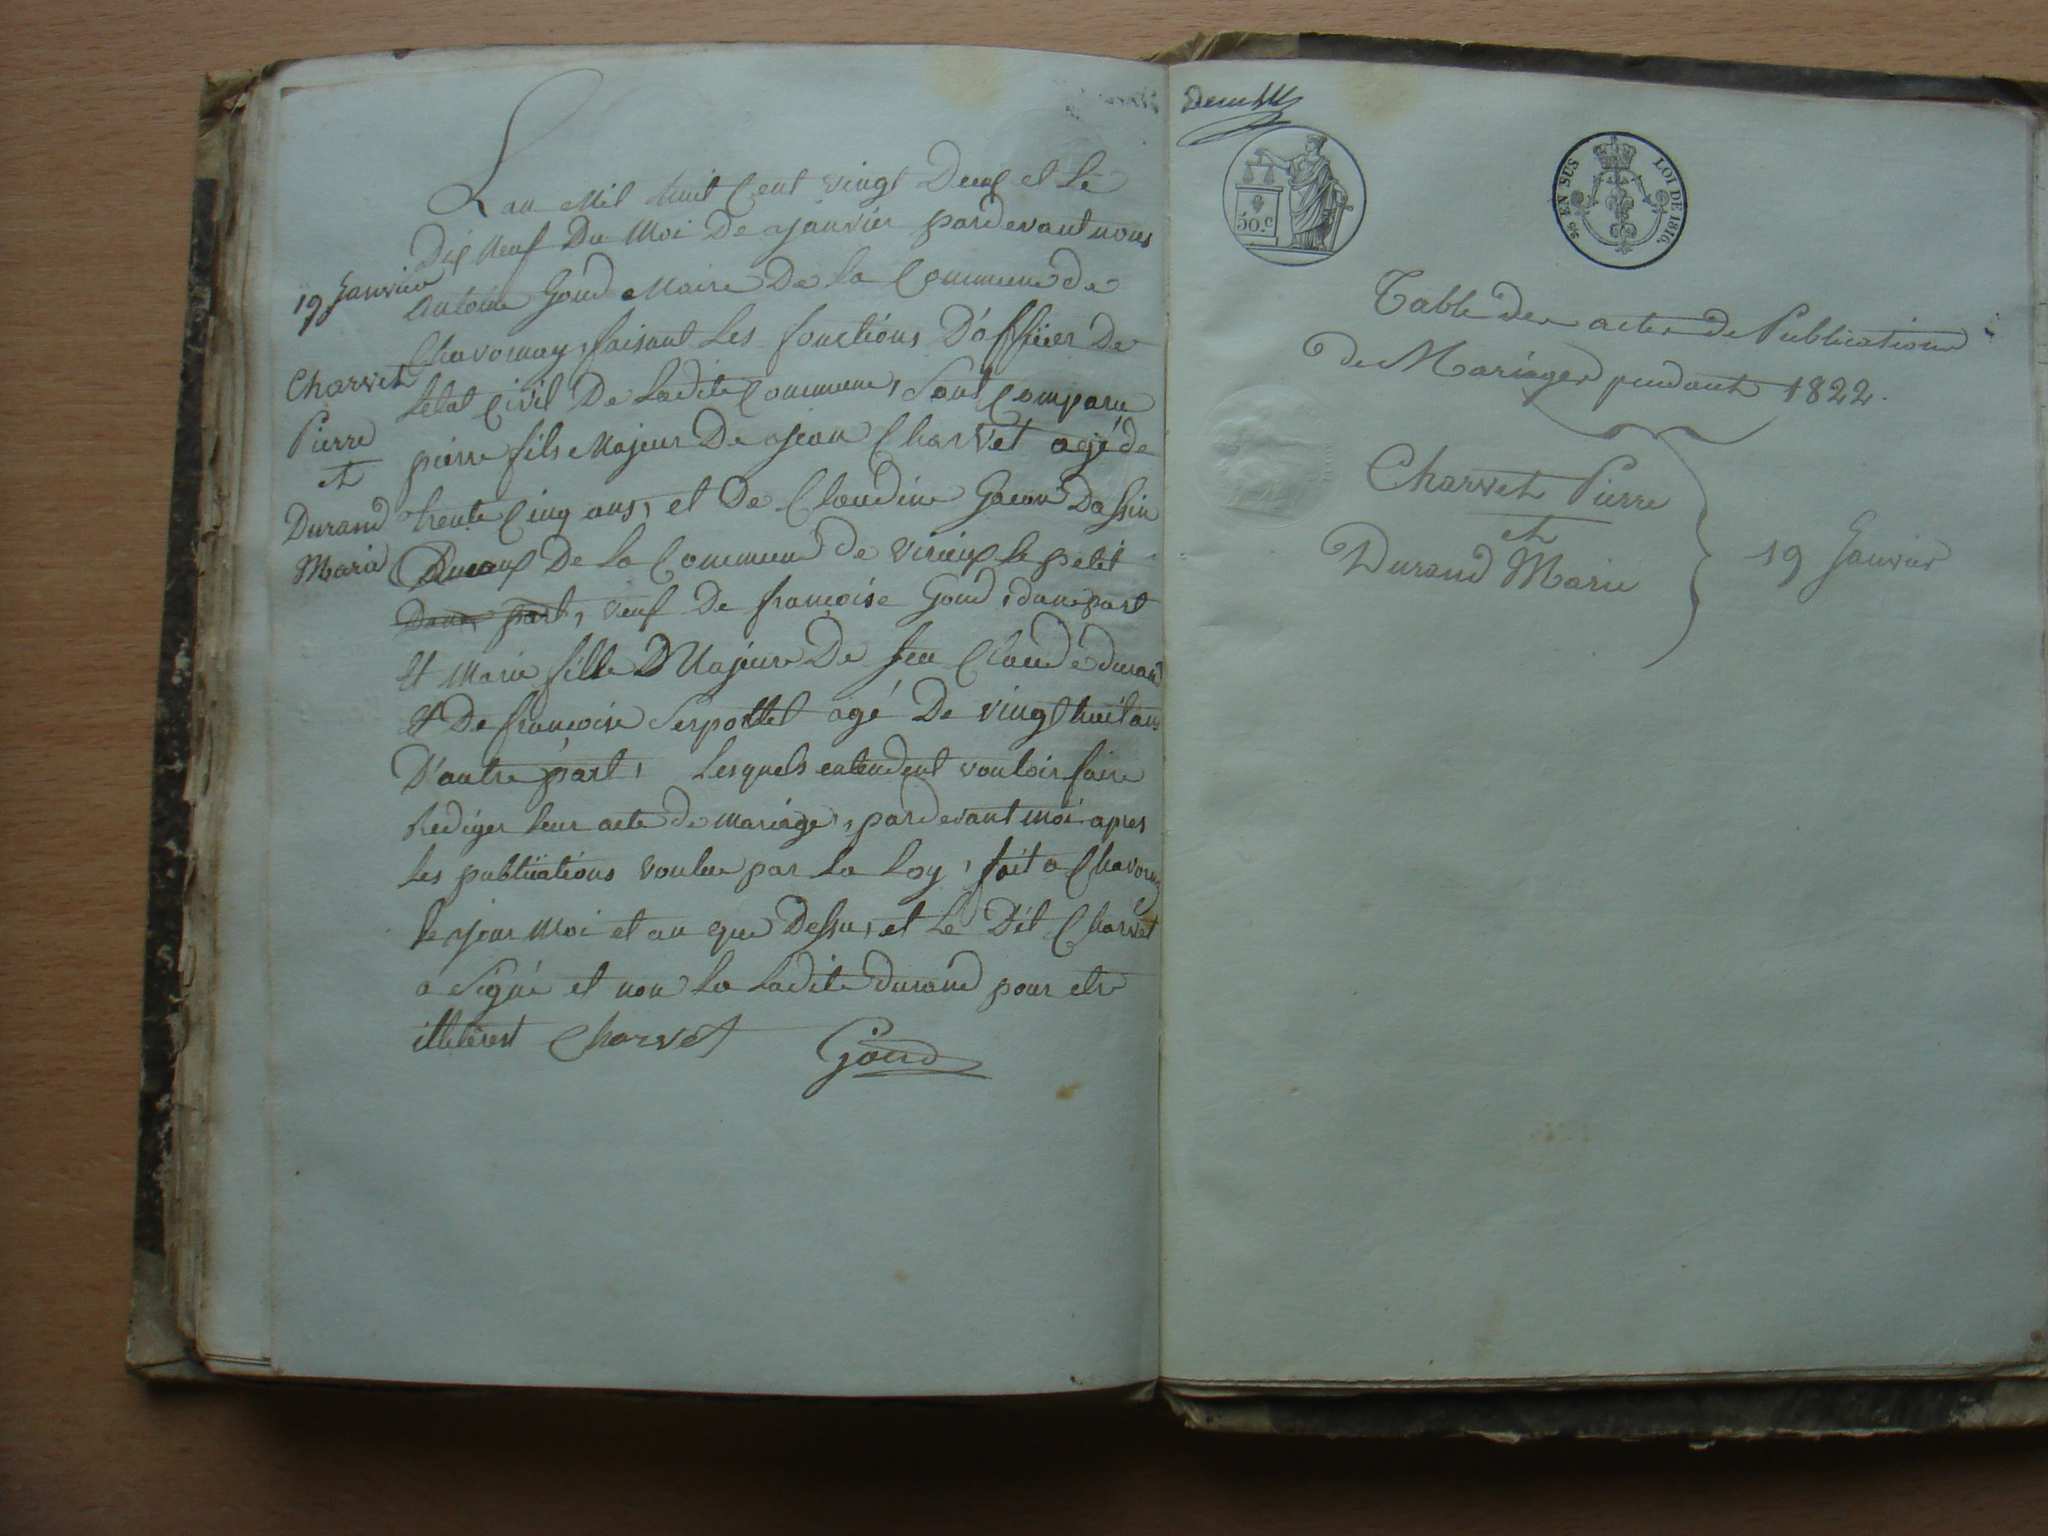 19 Janvier
Charvet
Pierre
et
Durand
Marie
L'an Mil huit Cent vingt Deux et Le
Dix Neuf Du Moi De Janvier pardevant nous
Antoine Goud Maire De La Commune de
Chavornay, faisant Les fonctions D'officier De
letat Civil De Ladite Commune, Sont Comparu
pierre fils Majeur De Jean Charvet agé de
trente Cinq ans, et De Claudine
De La Commune de virieux Le petit
Dune part, veuf De francoise Goud, dune part
et Marie fille Majeure De feu Claude durand
et De francoise Serpollet agé De vingt huit ans
D'autre part, Lesquels entendent vouloir faire
Rediger leur acte de mariage, pardevant moi apres
les publiiations voulue par La Loy, fait a Chavornay
le jour Moi et an que Dessu, et Le Dit Charvet
a Signé et non La Ladite durand pour etre
Charvet Goud
50.c
25 EN SUS LOI DE 1816.
Table des actes de Publications
de Mariages pendant 1822.
Charvet Pierre
et
Durand Marie
19 Janvier